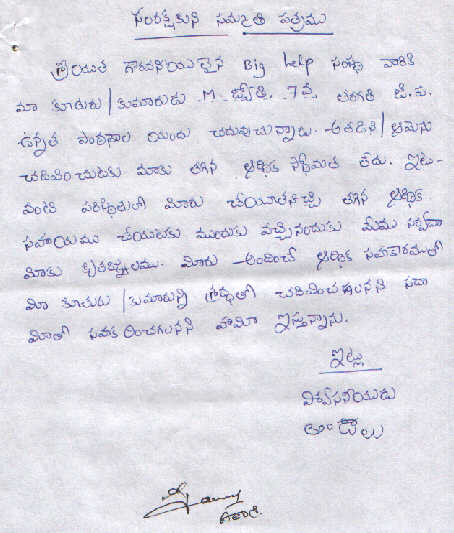 సంరక్షకుని సమ్మతి పత్రము
శ్రీయుత గౌరవనీయులైన Big help సంస్థ వారికి
మా కూతురు / కుమారుడు M. జ్యోతి. 7వ తరగతి జి.ప.
ఉన్నత పాఠశాల యందు చదువుచున్నాడు. అతడిని / ఆమెను
చదివించుటకు మాకు తగిన ఆర్థిక స్తోమత లేదు. ఇటు-
వంటి పరిస్థితులలో మీరు చేయూతనిచ్చి తగిన ఆర్థిక
సహాయము చేయుటకు ముందుకు వచ్చినందుకు మేము సర్వదా
మీకు కృతజ్ఞులము. మీరు అందించే ఆర్థిక సహకారముతో
మా కూతురు / కుమారున్ని శ్రద్ధతో చదివించగలనని సదా
మీతో సహకరించగలనని హామీ ఇస్తున్నాను.
ఇట్లు
విశ్వసనీయుడు